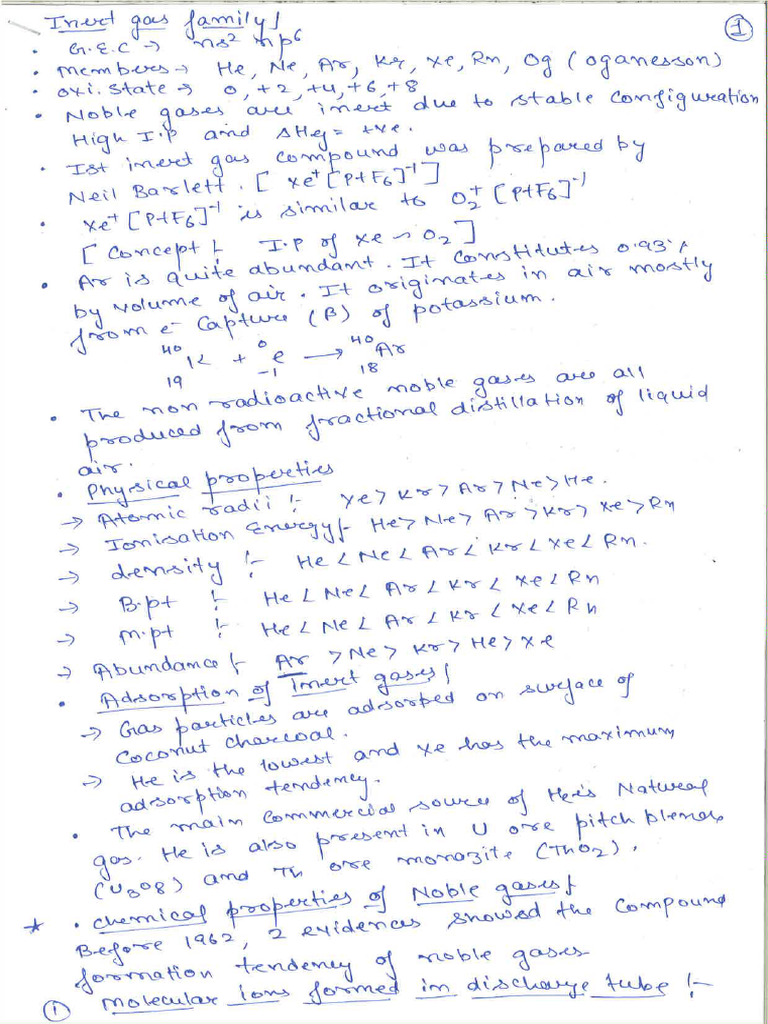 Inert gas family
①
• G.E.C → ns² np⁶
• Members → He, Ne, Ar, Kr, Xe, Rn, Og (oganesson)
• Oxi. State → 0, +2, +4, +6, +8
• Noble gases are inert due to stable configuration
High I.P and ΔHeg = +ve.
• Ist inert gas compound was prepared by
Neil Barlett. [ Xe⁺[PtF₆]⁻¹]
• Xe⁺[PtF₆]⁻¹ is similar to O₂⁺[PtF₆]⁻¹
[Concept :- I.P of Xe ~ O₂]
• Ar is quite abundant. It constitutes 0.93%
by volume of air. It originates in air mostly
from e⁻ capture (β) of potassium.
⁴⁰₁₉K + ⁰₋₁e → ⁴⁰₁₈Ar
• The non radioactive noble gases are all
produced from fractional distillation of liquid
air.
• Physical properties
→ Atomic radii :- Xe > Kr > Ar > Ne > He.
→ Ionisation Energy :- He > Ne > Ar > Kr > Xe > Rn
→ density :- He < Ne < Ar < Kr < Xe < Rn.
→ B.pt :- He < Ne < Ar < Kr < Xe < Rn
→ m.pt :- He < Ne < Ar < Kr < Xe < Rn
→ Abundance :- Ar > Ne > Kr > He > Xe
• Adsorption of Inert gases
→ Gas particles are adsorbed on surface of
Coconut charcoal.
→ He is the lowest and Xe has the maximum
adsorption tendency.
• The main commercial source of He is Natural
gas. He is also present in U ore pitch blende
(U₃O₈) and Th ore monazite (ThO₂).
★ • Chemical properties of Noble gases
Before 1962, 2 evidences showed the compound
formation tendency of noble gases
① Molecular ions formed in discharge tube :-